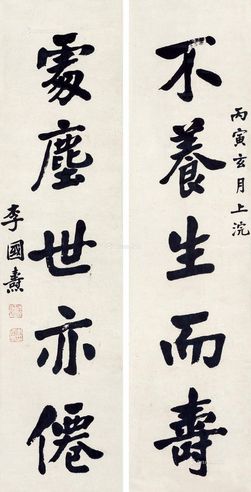 丙寅玄月上浣
不養生而壽
處塵世亦僊
李國燾